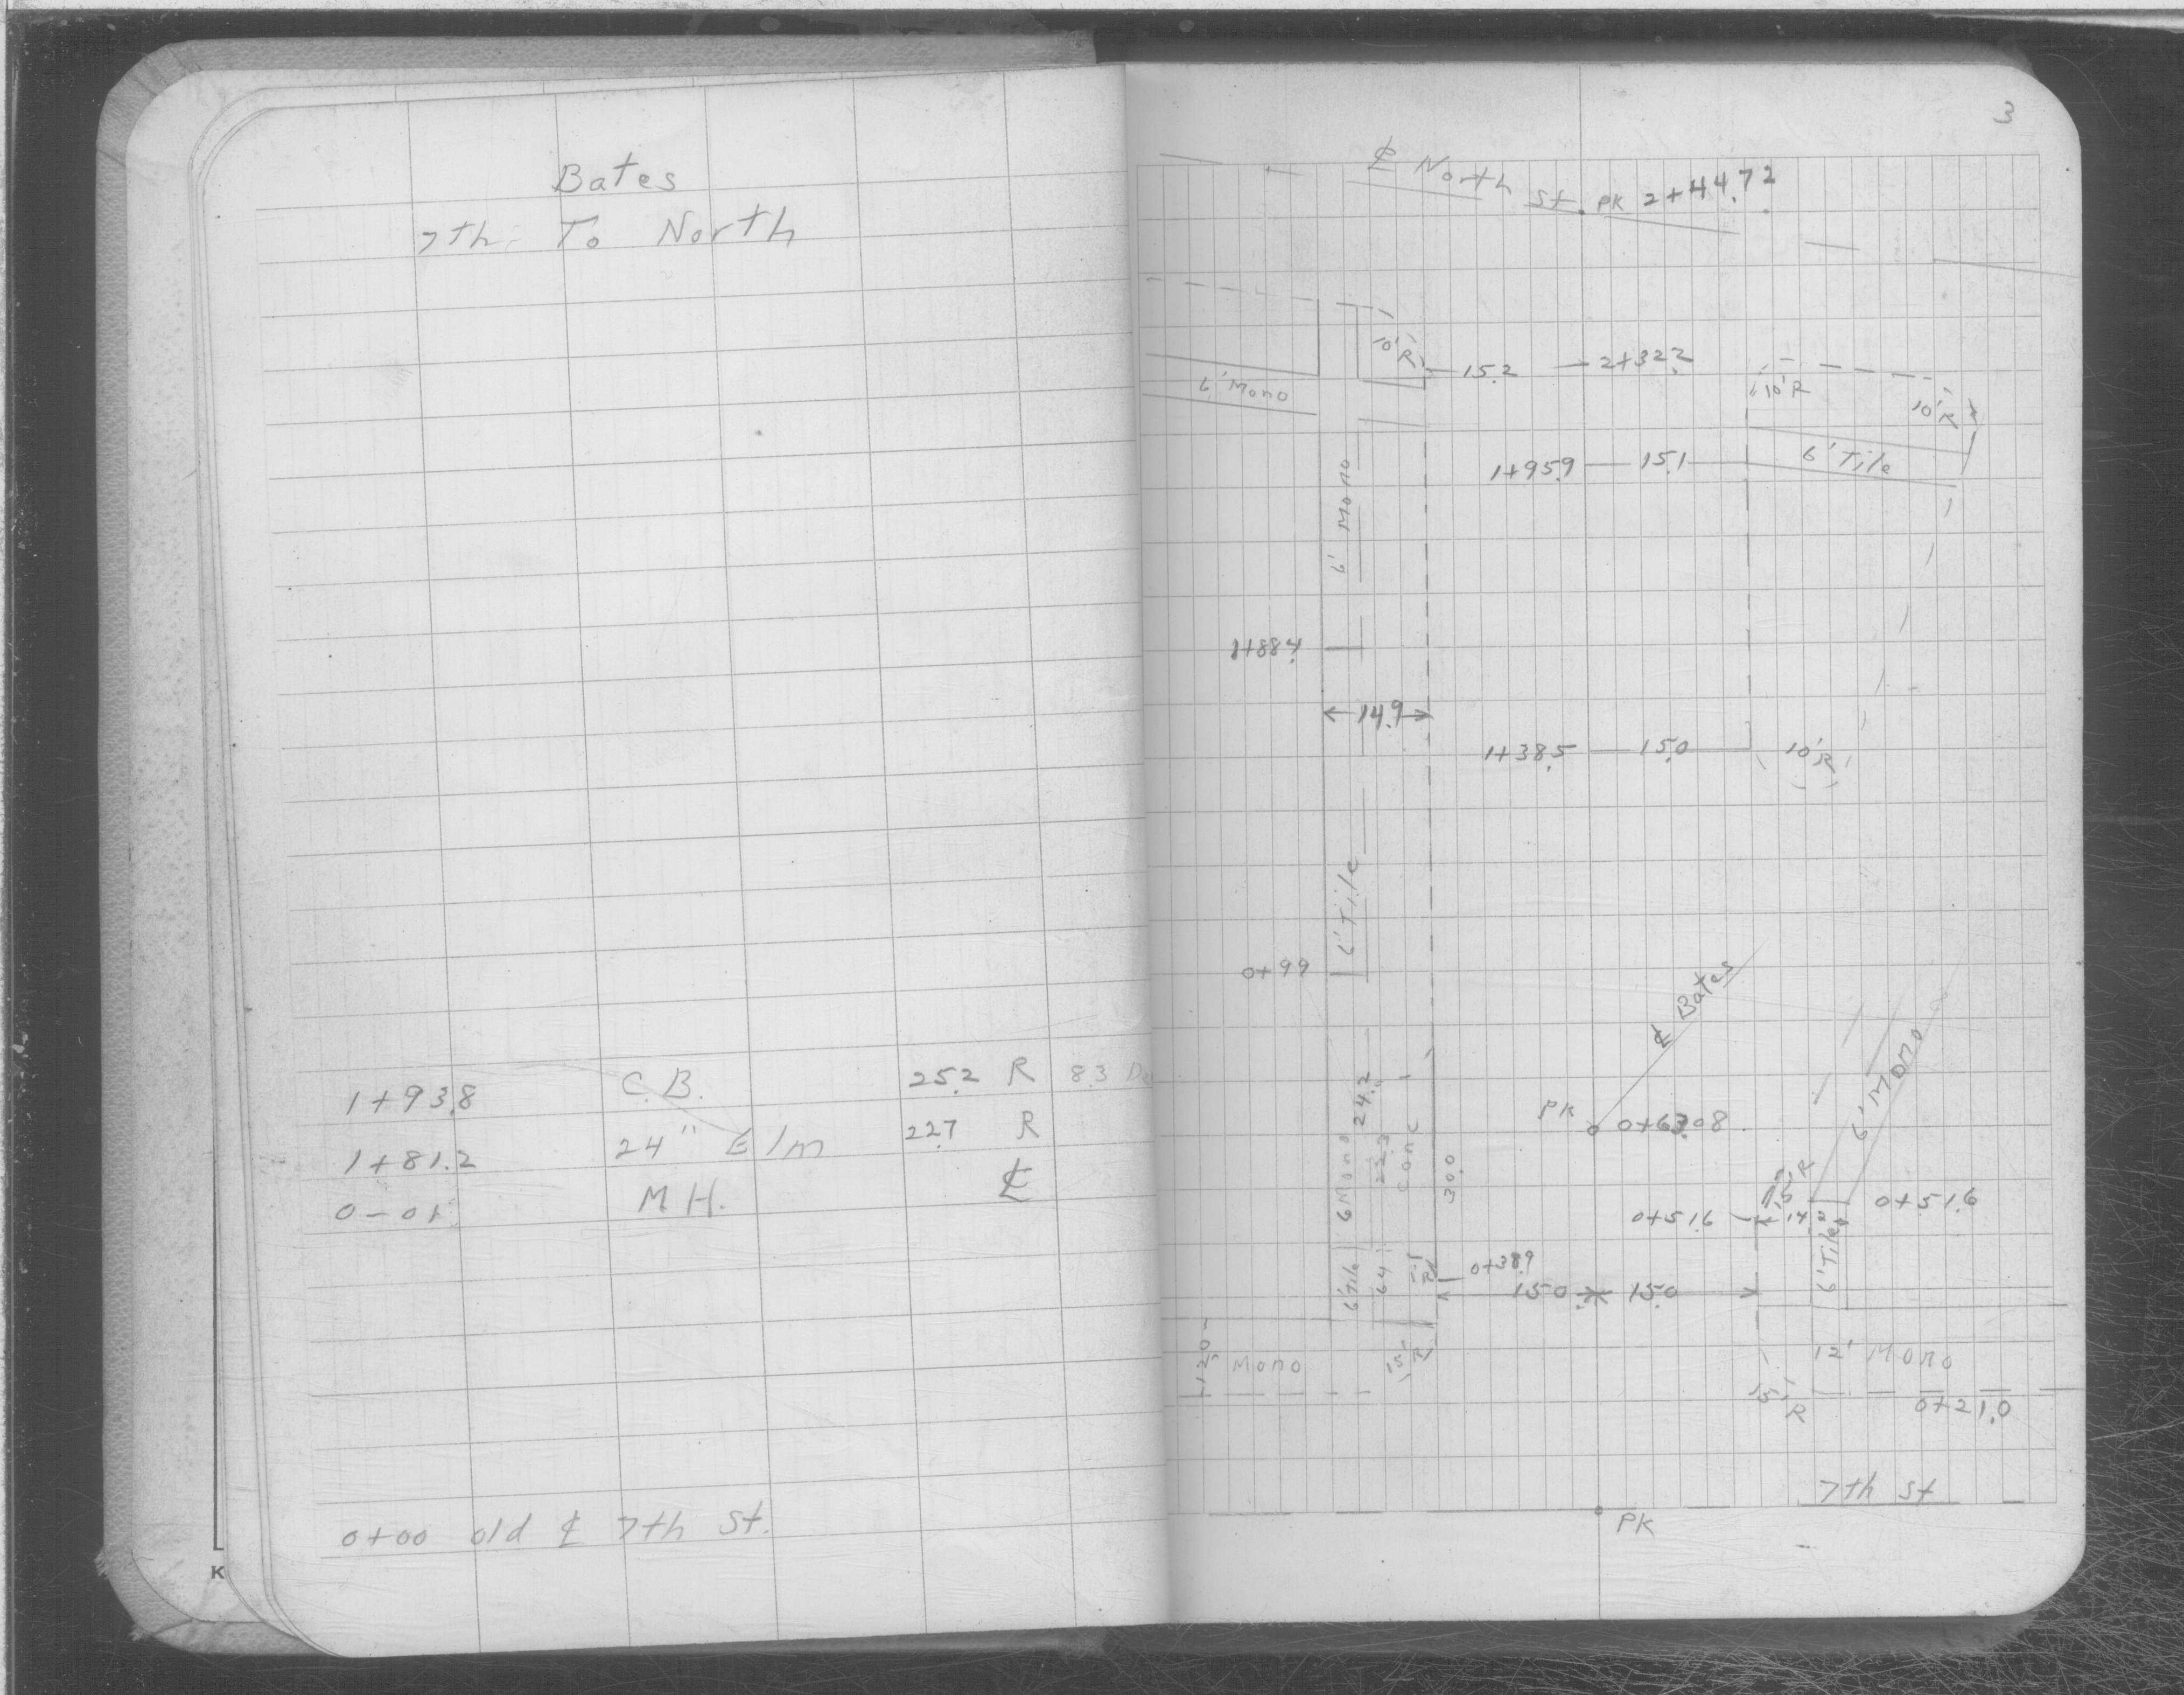 Bates
7th To North
1+93.8 C.B. 25.2 R 8.3
1+81.2 24" Elm 22.7 R
0-01 M.H. ℄
0+00 old ℄ 7th St.
K
3
℄ North St. PK 2+44.72
10' R 15.2 2+32.2
6' Mono
10' R
10' R
1+95.9 15.1 6' Tile
6' Mono
1+88.4
14.9
1+38.5 15.0 10' R
6' Tile
0+99
℄ Bates
6' Mono
PK 0+63.08
6' Mono 24.2
22.3
Conc
30.0
15' R
0+51.6 14.2 0+51.6
6' Tile
0+38.9
15.0 15.0
6' Tile 6.4
12.0 Mono 15' R
12' Mono
15' R
0+21.0
7th St
PK